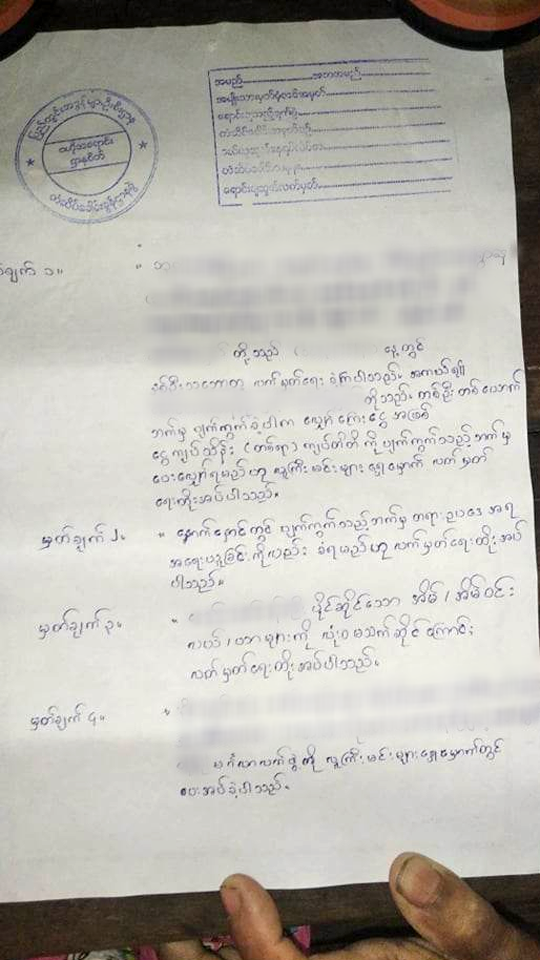 ပြည်တွင်းအခွန်များဦးစီးဌာန
တံဆိပ်ခေါင်းခွန်ဌာနခွဲ
အမည် အဘအမည်
အမျိုးသားမှတ်ပုံတင်အမှတ်
ရောင်းချသည့်ရက်စွဲ
ရောင်းချသူလက်မှတ်
ချက် ၁။ " ဘ
တို့သည် ( နေ့တွင်
နှစ်ဦးသဘောတူ လက်မှတ်ရေး ခဲ့ကြပါသည်။ အကယ်၍
တို့သည်၊ တစ်ဦး တစ်ယောက်
ဘက်မှ ပျက်ကွက်ခဲ့ပါက လျှော်ကြေးငွေ အဖြစ်
ငွေကျပ်သိန်း (တစ်ရာ) ကျပ်တိတိ ကိုပျက်ကွက်သည့်ဘက်မှ
ပေးလျှော်ရမည်ဟု လူကြီးမင်းများ ရှေ့မှောက် လက်မှတ်
ရေးထိုးအပ်ပါသည်။
မှတ်ချက် ၂။ " နောက်နောင်တွင် ပျက်ကွက်သည့်ဘက်မှ တရားဥပဒေ အရ
အရေးယူခြင်းကိုလည်း ခံရမည်ဟု လက်မှတ်ရေးထိုးအပ်
ပါသည်။
မှတ်ချက် ၃။ " ပိုင်ဆိုင်သော အိမ် / အိမ်ဝင်း
လယ် / ယာများကို လုံးဝမသက်ဆိုင်ကြောင်း
လက်မှတ်ရေးထိုးအပ်ပါသည်။
မှတ်ချက် ၄။ "
မင်္ဂလာလက်ဖွဲ့ကို လူကြီးမင်းများရှေ့မှောက်တွင်
ပေးအပ်ခဲ့ပါသည်။